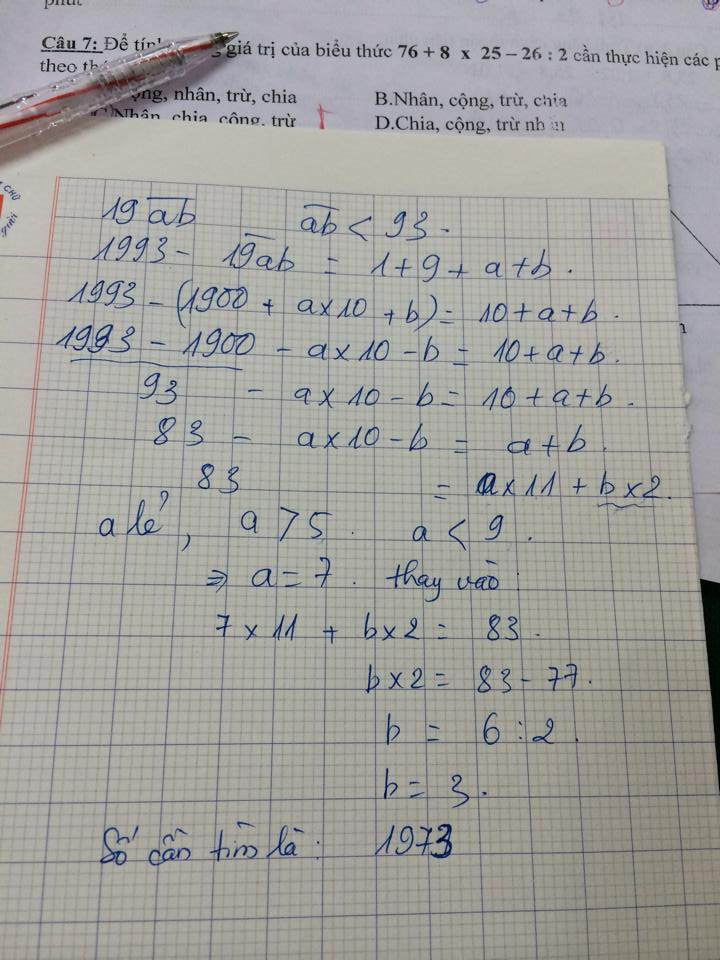 phút
Câu 7: Để tính giá trị của biểu thức 76 + 8 x 25 – 26 : 2 cần thực hiện các
theo
ộng, nhân, trừ, chia
B.Nhân, cộng, trừ, chia
Nhân, chia, cộng, trừ
D.Chia, cộng, trừ nhân
CHỮ
19ab ab < 93.
1993 - 19ab = 1 + 9 + a + b.
1993 - (1900 + a x 10 + b) = 10 + a + b.
1993 - 1900 - a x 10 - b = 10 + a + b.
93 - a x 10 - b = 10 + a + b.
83 - a x 10 - b = a + b.
83 = a x 11 + b x 2.
a lẻ, a > 5. a < 9.
=> a = 7. thay vào:
7 x 11 + b x 2 = 83.
b x 2 = 83 - 77.
b = 6 : 2.
b = 3.
Số cần tìm là: 1973